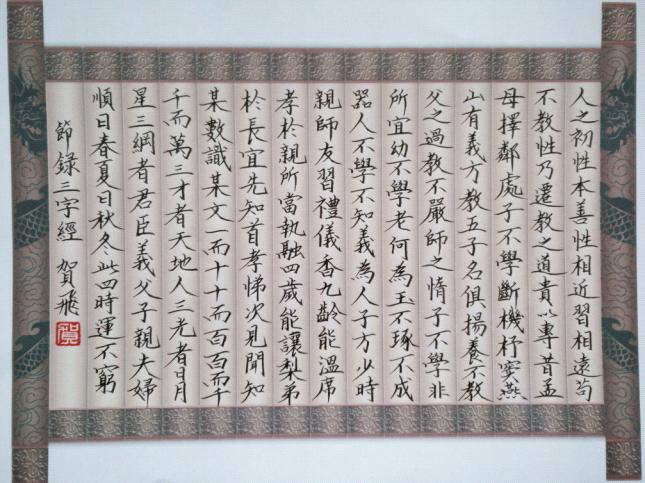 人之初性本善性相近習相遠苟
不教性乃遷教之道貴以專昔孟
母擇鄰處子不學斷機杼竇燕
山有義方教五子名俱揚養不教
父之過教不嚴師之惰子不學非
所宜幼不學老何為玉不琢不成
器人不學不知義為人子方少時
親師友習禮儀香九齡能溫席
孝於親所當執融四歲能讓梨弟
於長宜先知首孝悌次見聞知
某數識某文一而十十而百百而千
千而萬三才者天地人三光者日月
星三綱者君臣義父子親夫婦
順曰春夏曰秋冬此四時運不窮
節錄三字經 賀飛
賀